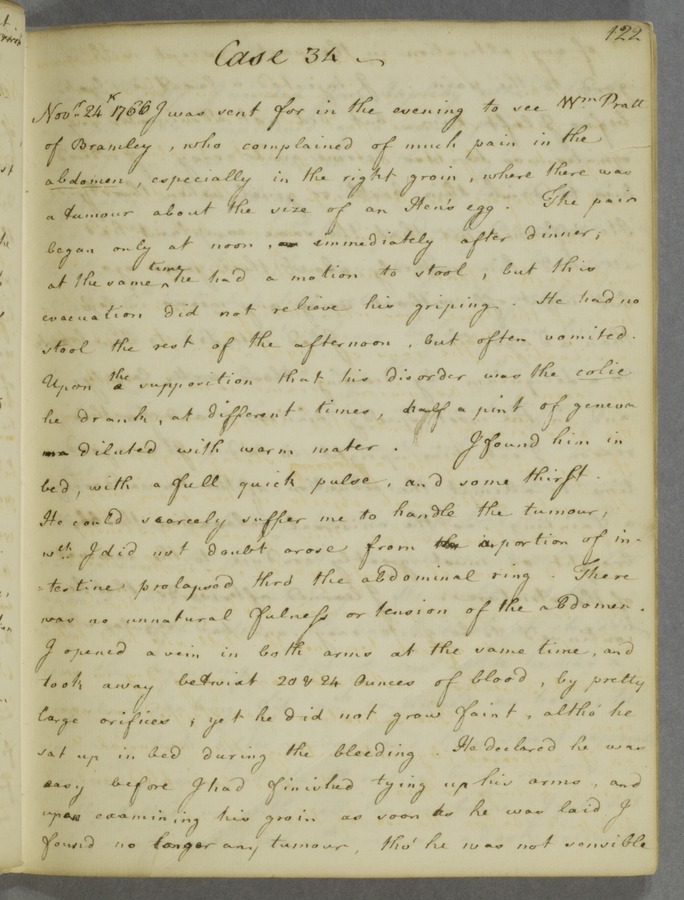 122
Case 34
Novr. 24th 1766 I was sent for in the evening to see Wm Pratt
of Bramley, who complained of much pain in the
abdomen, especially in the right groin, where there was
a tumour about the size of an Hen's egg. The pain
began only at noon, immediately after dinner;
at the same time he had a motion to stool, but this
evacuation did not relieve his griping. He had no
stool the rest of the afternoon, but often vomited.
Upon the supposition that his disorder was the colic
he drank, at different times, half a pint of geneva
diluted with warm water. I found him in
bed, with a full quick pulse, and some thirst.
He could scarcely suffer me to handle the tumour,
wch. I did not doubt arose from a portion of in-
=testine prolapsed thro' the abdominal ring. There
was no unnatural fulness or tension of the abdomen.
I opened a vein in both arms at the same time, and
took away betwixt 20 & 24 Ounces of blood, by pretty
large orifices; yet he did not grow faint, altho' he
sat up in bed during the bleeding. He declared he was
easy before I had finished tying up his arms, and
upon examining his groin as soon as he was laid I
found no longer any tumour, tho' he was not sensible